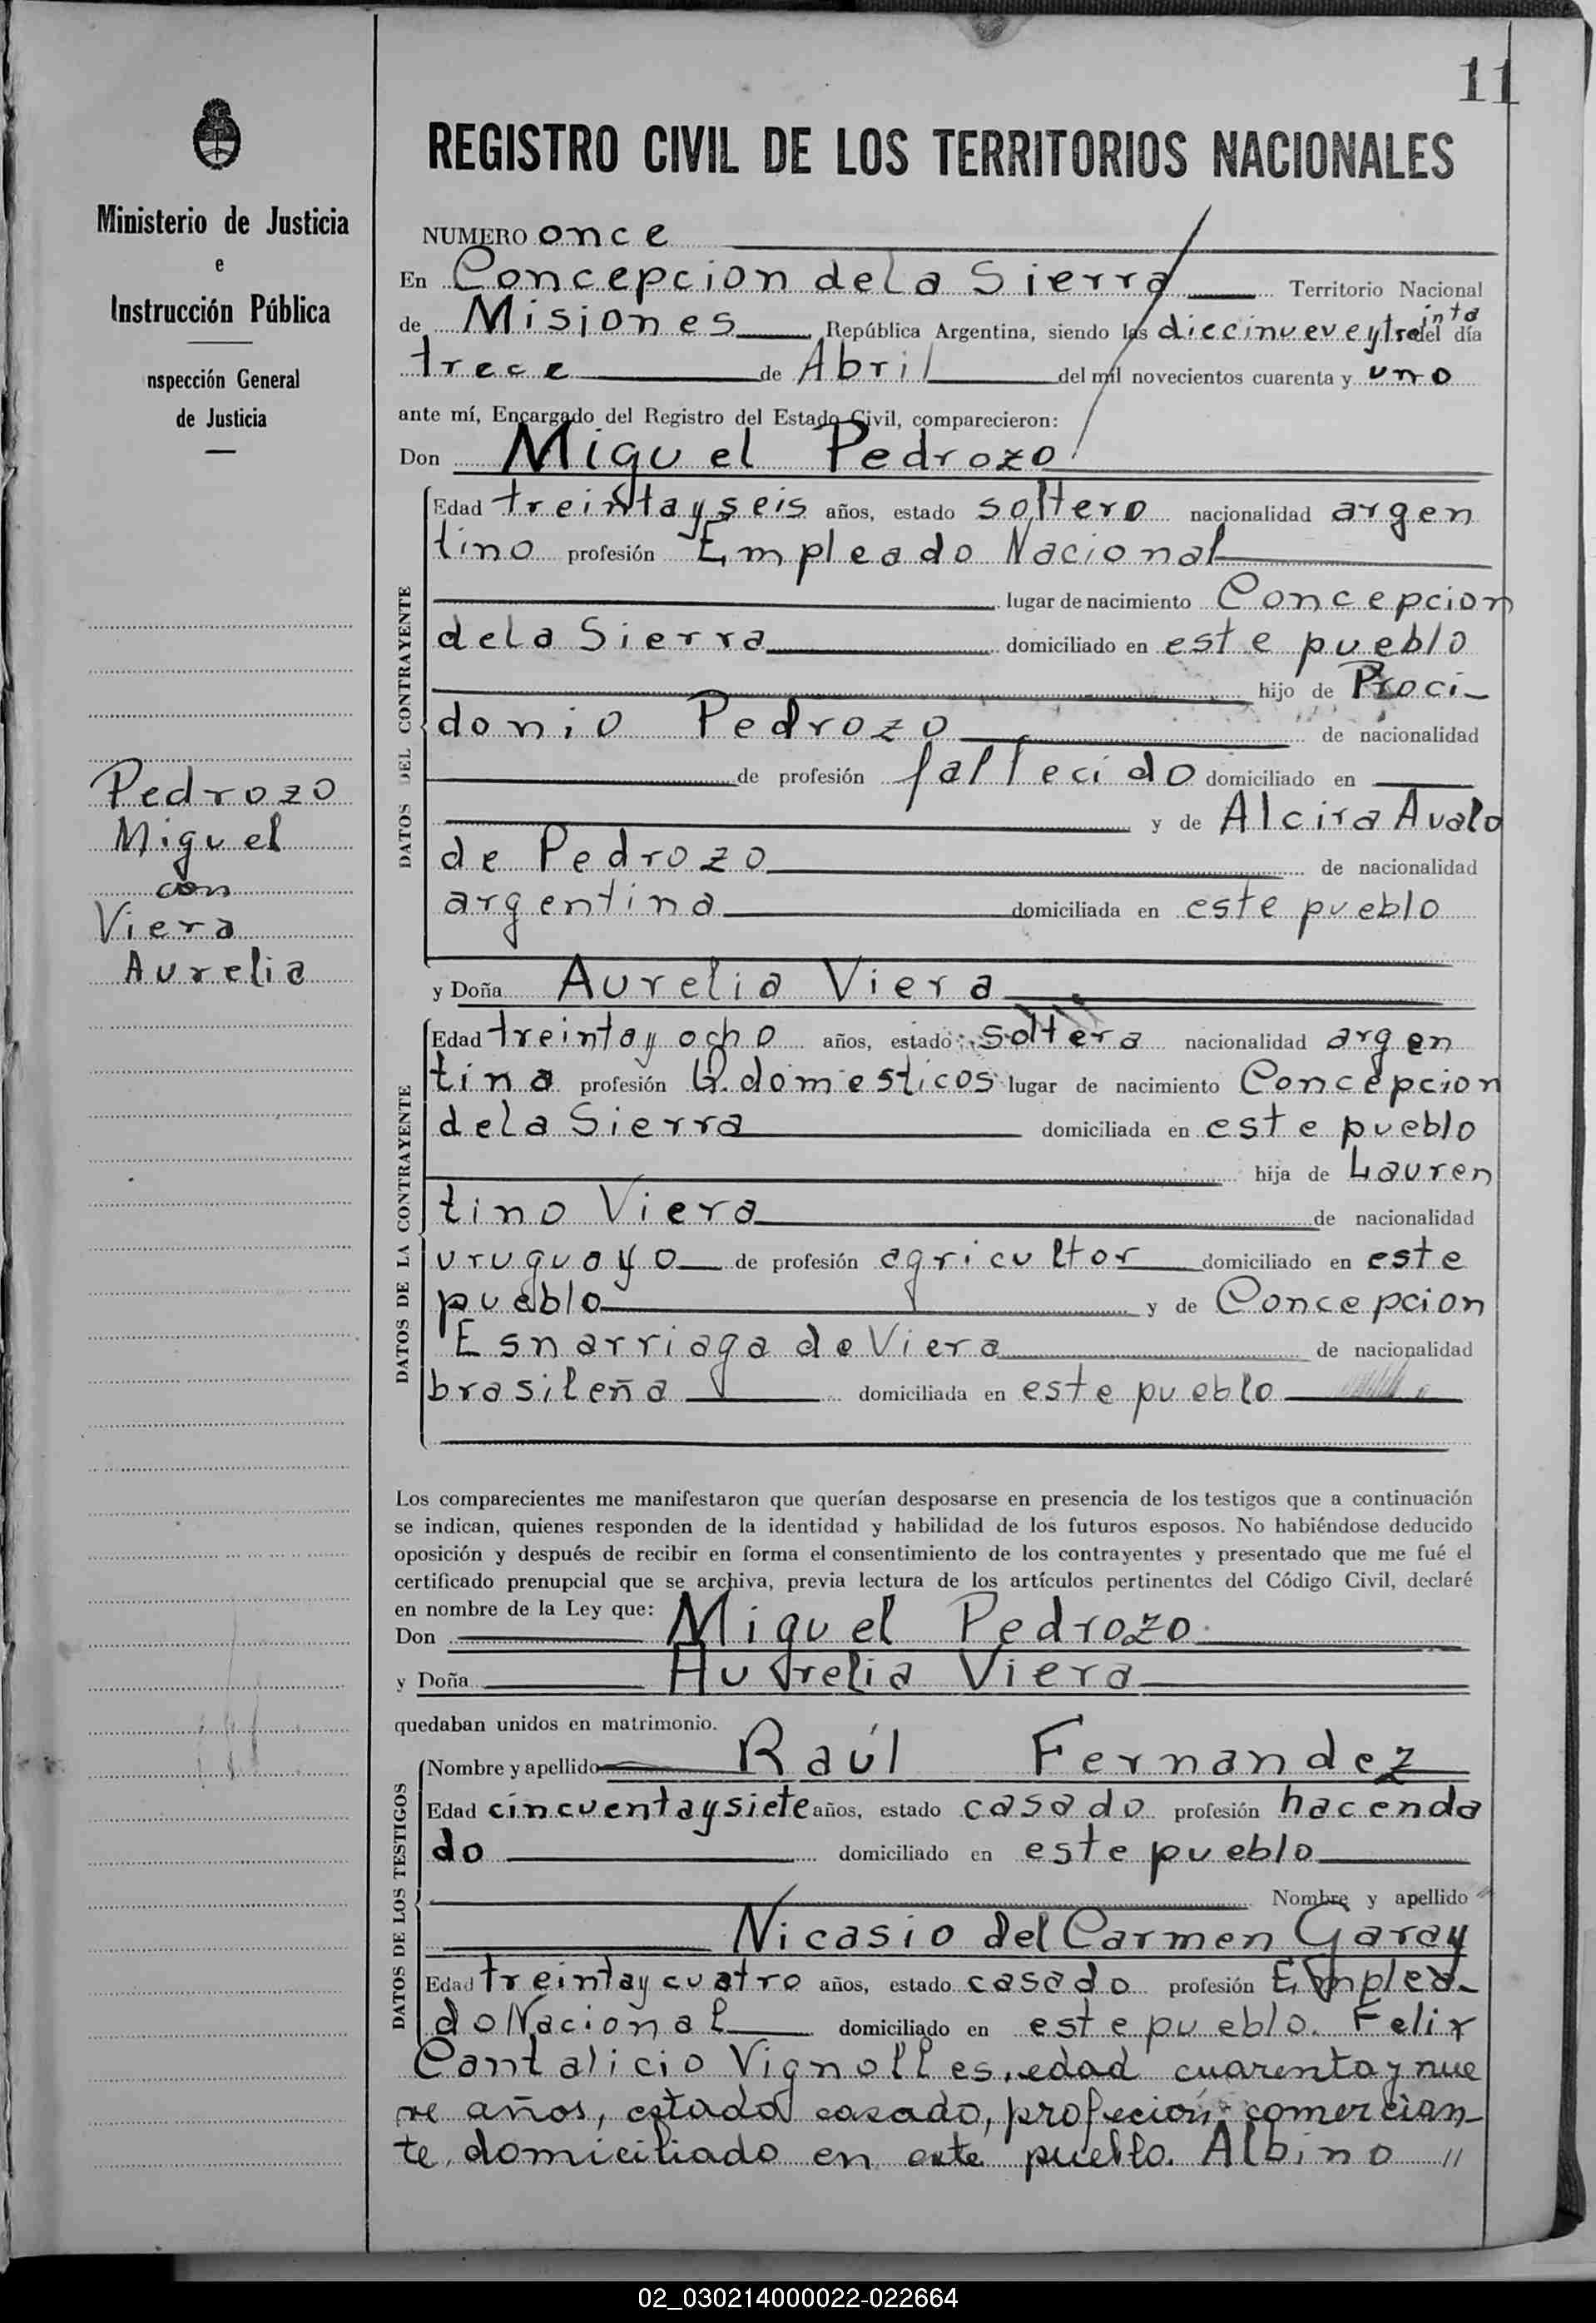 11
REGISTRO CIVIL DE LOS TERRITORIOS NACIONALES
Ministerio de Justicia
e
Instrucción Pública
nspección General
de Justicia
NUMERO once
En Concepcion de la Sierra Territorio Nacional
de Misiones República Argentina, siendo las diecinueve y treinta del día
trece de Abril del mil novecientos cuarenta y uno
ante mí, Encargado del Registro del Estado Civil, comparecieron:
Don Miguel Pedrozo
DATOS DEL CONTRAYENTE
Edad treinta y seis años, estado soltero nacionalidad argen
tino profesión Empleado Nacional
lugar de nacimiento Concepcion
de la Sierra domiciliado en este pueblo
hijo de Proci-
donio Pedrozo de nacionalidad
de profesión fallecido domiciliado en
y de Alcira Avalo
de Pedrozo de nacionalidad
argentina domiciliada en este pueblo
Pedrozo
Miguel
con
Viera
Aurelia
y Doña Aurelia Viera
DATOS DE LA CONTRAYENTE
Edad treinta y ocho años, estado soltera nacionalidad argen
tina profesión Q. domesticos lugar de nacimiento Concepcion
de la Sierra domiciliada en este pueblo
hija de Lauren
tino Viera de nacionalidad
uruguayo de profesión agricultor domiciliado en este
pueblo y de Concepcion
Esnarriaga de Viera de nacionalidad
brasileña domiciliada en este pueblo
Los comparecientes me manifestaron que querían desposarse en presencia de los testigos que a continuación
se indican, quienes responden de la identidad y habilidad de los futuros esposos. No habiéndose deducido
oposición y después de recibir en forma el consentimiento de los contrayentes y presentado que me fué el
certificado prenupcial que se archiva, previa lectura de los artículos pertinentes del Código Civil, declaré
en nombre de la Ley que:
Don Miguel Pedrozo
y Doña Aurelia Viera
quedaban unidos en matrimonio.
DATOS DE LOS TESTIGOS
Nombre y apellido Raúl Fernandez
Edad cincuenta y siete años, estado casado profesión hacenda
do domiciliado en este pueblo
Nombre y apellido
Nicasio del Carmen Garay
Edad treinta y cuatro años, estado casado profesión Emplea-
do Nacional domiciliado en este pueblo. Felix
Cantalicio Vignolles, edad cuarenta y nue
ve años, estado casado, profecion comercian-
te, domiciliado en este pueblo. Albino //
02_030214000022-022664